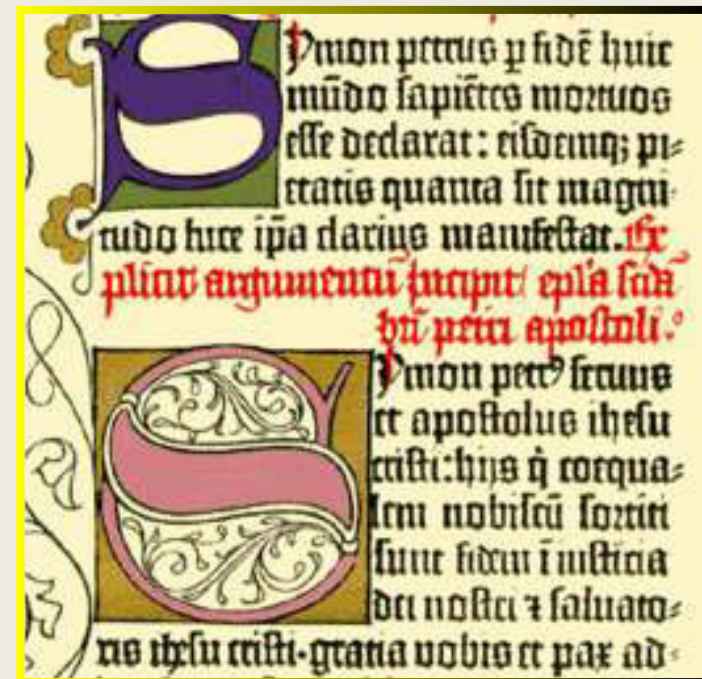 SYmon petrus ꝑ fidē huic
mūdo ſapiētes mortuos
eſſe declarat : eiſdemq; pi⸗
etatis quanta ſit magni⸗
tudo luce ip̄a clarius manifeſtat. Ex
plicit argumentū Incipit epl'a ſcdā
bt̄i petri apoſtoli.
SYmon petrꝰ ſeruus
et apoſtolus iheſu
criſti : hijs q̇ coequa⸗
lem nobiſcū ſortiti
ſunt fidem ī iuſticia
dei noſtri ⁊ ſaluato⸗
ris iheſu criſti. gratia vobis et pax ad⸗